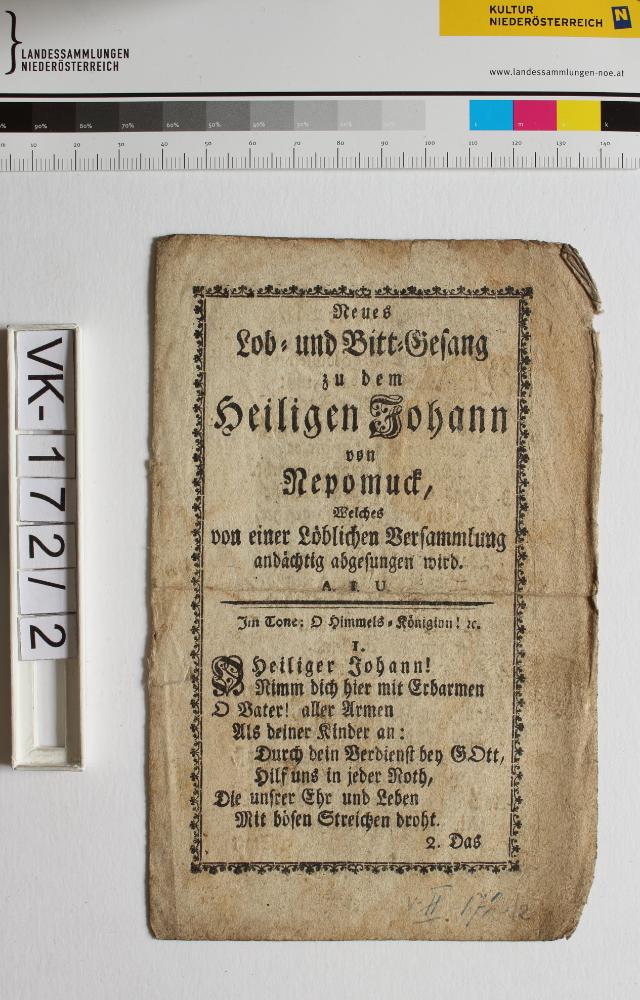 LANDESSAMMLUNGEN
NIEDERÖSTERREICH
KULTUR
NIEDERÖSTERREICH
N
www.landessammlungen-noe.at
90% 80% 70% 60% 50% 40% 30% 20% 10% c m y k
10 20 30 40 50 60 70 80 90 100 110 120 130 140
VK-172/2
Neues
Lob- und Bitt-Gesang
zu dem
Heiligen Johann
von
Nepomuck,
Welches
von einer Löblichen Versammlung
andächtig abgesungen wird.
A. F. U
Im Tone: O Himmels-Königinn! ꝛc.
1.
O Heiliger Johann!
Nimm dich hier mit Erbarmen
O Vater! aller Armen
Als deiner Kinder an:
Durch dein Verdienst bey GOtt,
Hilf uns in jeder Noth,
Die unsrer Ehr und Leben
Mit bösen Streichen droht.
2. Das